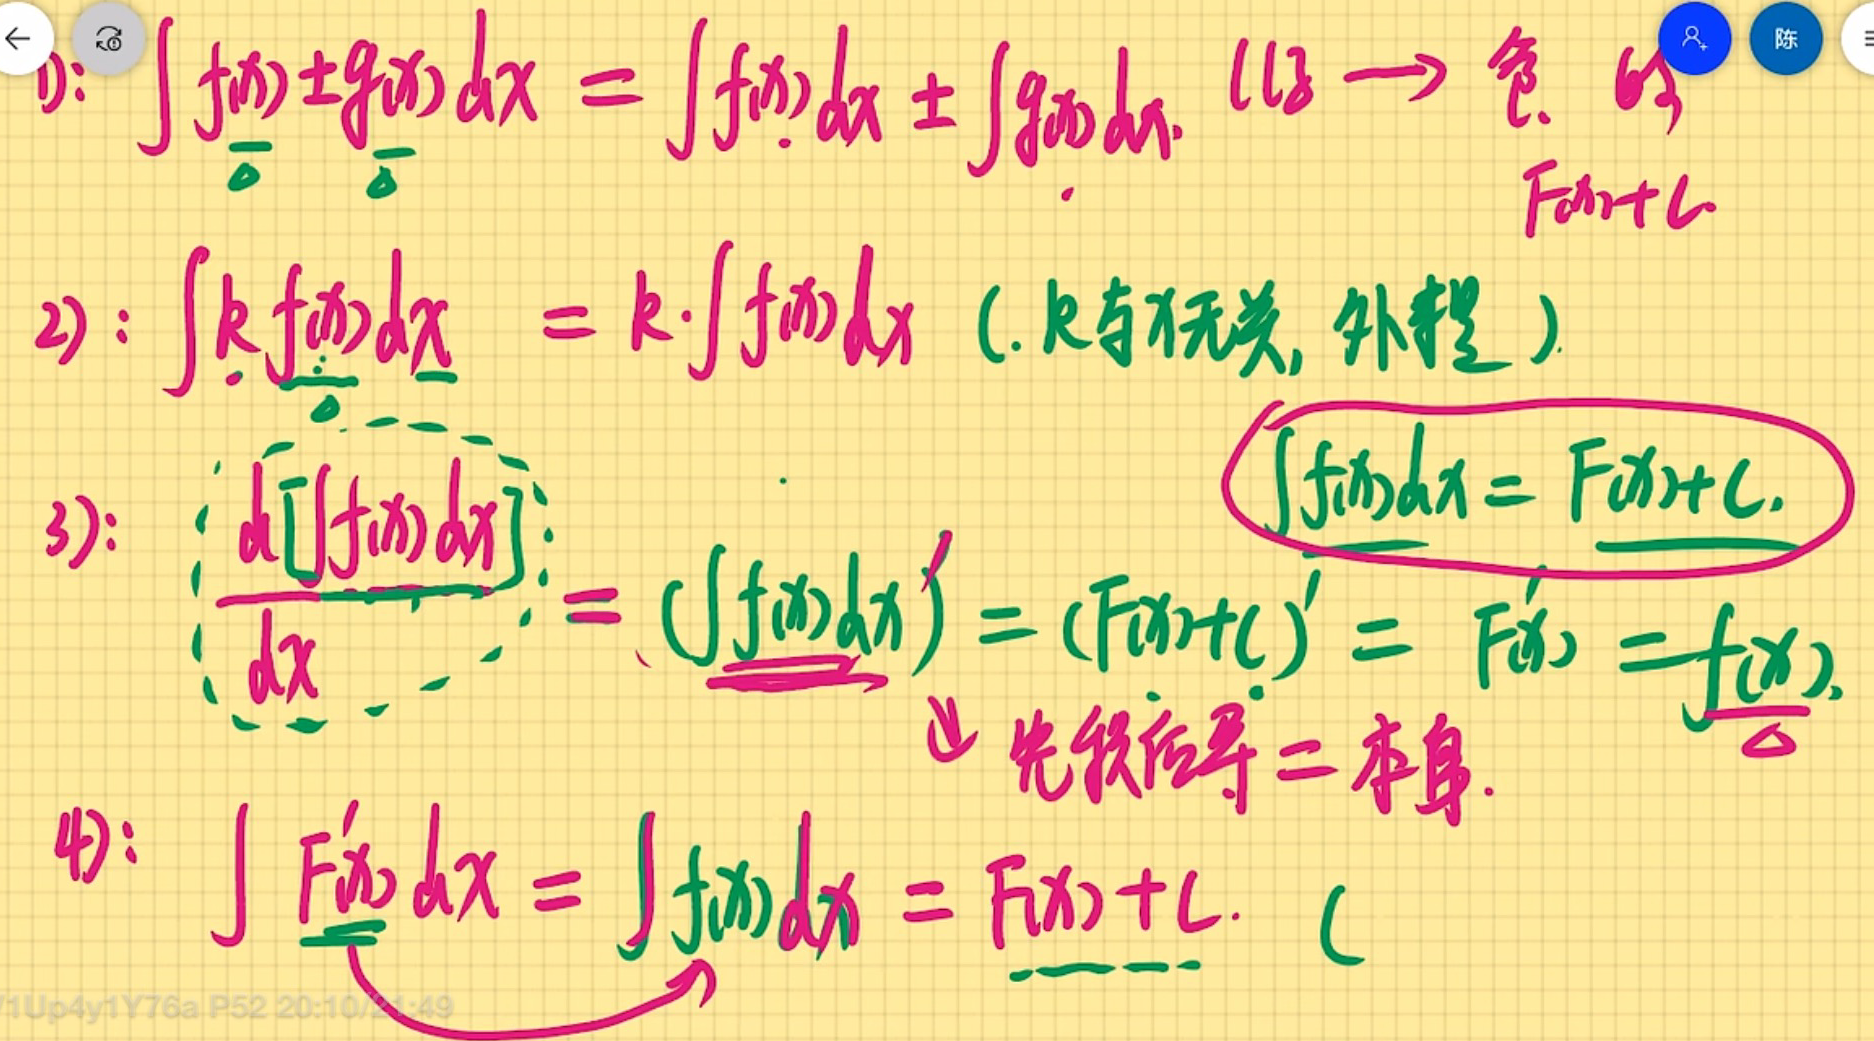 陈
1): ∫ f(x) ± g(x) dx = ∫ f(x) dx ± ∫ g(x) dx.
F(x)+C.
2): ∫ k f(x) dx = k·∫ f(x) dx (. k与x无关, 外提).
∫ f(x) dx = F(x)+C.
3): d[∫ f(x) dx] / dx = (∫ f(x) dx)' = (F(x)+C)' = F'(x) = f(x).
先积后导 = 本身.
4): ∫ F'(x) dx = ∫ f(x) dx = F(x)+C. (
/1Up4y1Y76a P52 20:10/21:49